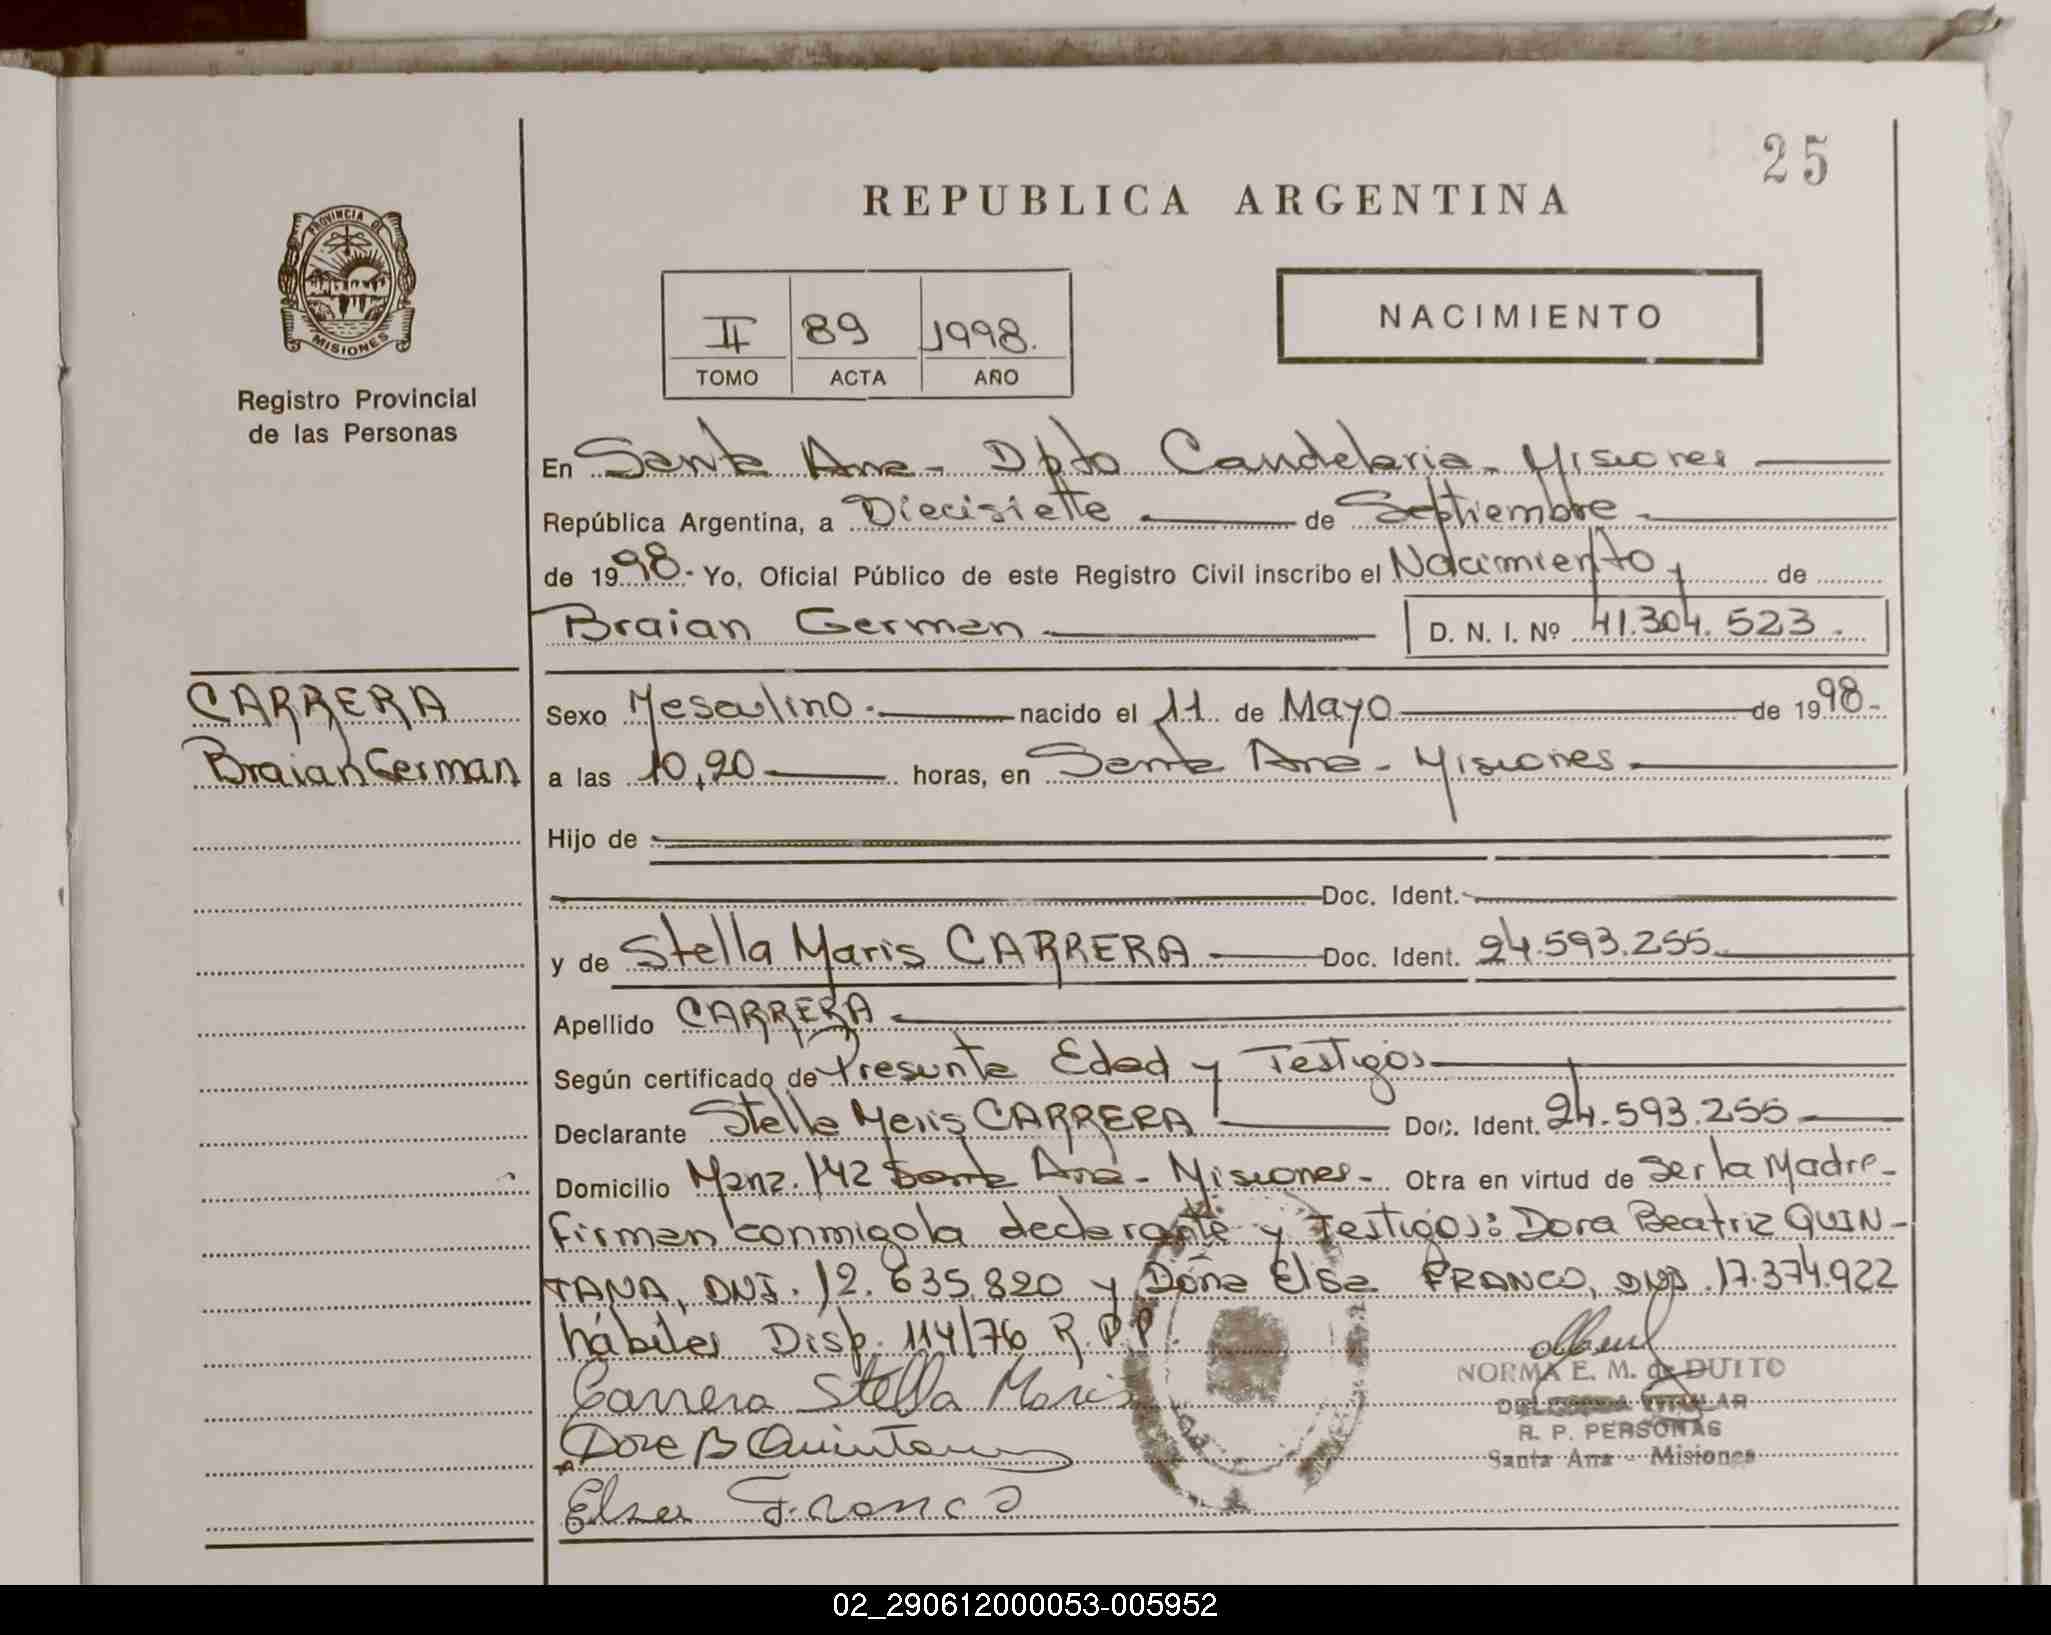 25
REPUBLICA ARGENTINA
PROVINCIA DE
MISIONES
Registro Provincial
de las Personas
II 89 1998.
TOMO ACTA AÑO
NACIMIENTO
En Santa Ana - Dpto Candelaria - Misiones
República Argentina, a Diecisiette de Septiembre
de 1998- Yo, Oficial Público de este Registro Civil inscribo el Nacimiento de
Braian German D. N. I. Nº 41.304.523.
CARRERA
Braian German
Sexo Masculino. nacido el 11 de Mayo de 1998-
a las 10,20 horas, en Santa Ana - Misiones
Hijo de
Doc. Ident.
y de Stella Maris CARRERA Doc. Ident. 24.593.255
Apellido CARRERA
Según certificado de Presunta Edad y Testigos
Declarante Stella Maris CARRERA Doc. Ident. 24.593.255
Domicilio Manz. 142 Santa Ana - Misiones - Obra en virtud de Ser la Madre-
firman conmigo la declarante y Testigos: Dora Beatriz QUIN-
TANA, DNI. 12.635.820 y Doña Elsa FRANCO, DNI. 17.374.922
hábiles Disp. 114/76 R.P.P.
Carrera Stella Maris
Dora B Quintana
Elsa Franco
NORMA E. M. de DUITO
DELEGADA TITULAR
R. P. PERSONAS
Santa Ana - Misiones
02_290612000053-005952